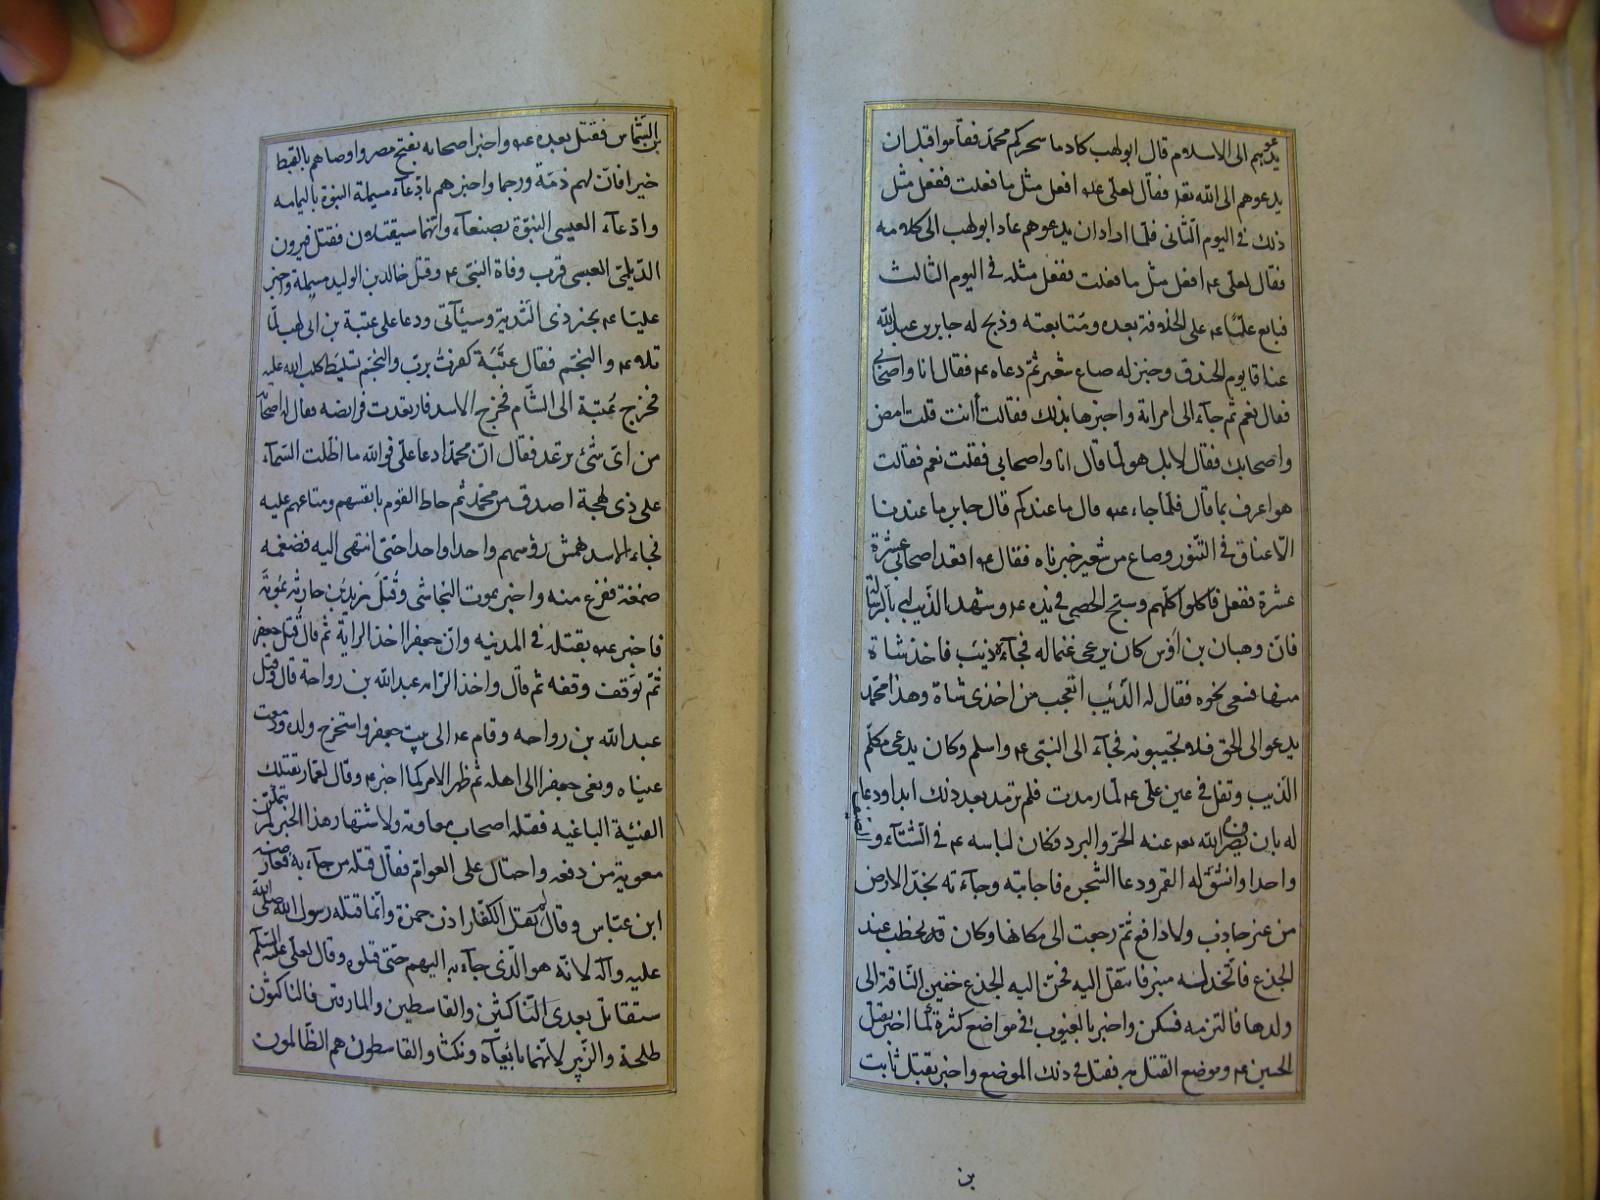 يدعوهم الى الاسلام قال ابو لهب كاد ما سحركم محمد فقاموا قبل ان
يدعوهم الى الله تعه فقال لعلى عم افعل مثل ما فعلت ففعل مثل
ذلك فى اليوم الثانى فلما اراد ان يدعوهم عاد ابو لهب الى كلامه
فقال لعلى عم افعل مثل ما فعلت ففعل مثله فى اليوم الثالث
فبايع عليا عم على الخلافة بعده ومتابعته وذبح له جابر بن عبد الله
عناقا يوم الخندق وخبز له صاع شعير ثم دعاه عم فقال انا واصحابى
فقال نعم ثم جاء الى امراته واخبرها بذلك فقالت أانت قلت امض
واصحابك فقال لا بل هو لما قال انا واصحابى فقلت نعم فقالت
هو اعرف بما قال فلما جاء عم قال ما عندكم قال جابر ما عندنا
الا عناق فى التنور وصاع من شعير خبزناه فقال عم اقعد اصحابى عشرة
عشرة ففعل فاكلوا كلهم وسبح الحصى فى يده عم وشهد الذيب له بالرسالة
فان وهبان بن اوس كان يرعى غنما له فجاءه ذئب فاخذ شاة
منها فسعى نحوه فقال له الذئب اتعجب من اخذى شاة وهذا محمد
يدعو الى الحق فلا تجيبونه فجاء الى النبى عم واسلم وكان يدعى مكلم
الذيب وتفل فى عين على عم لما رمدت فلم ترمد بعد ذلك ابدا ودعا
له بان يصرف الله تعه عنه الحر والبرد فكان لباسه عم فى الشتاء و الصيف
واحدا وانشق له القمر ودعا الشجرة فاجابته وجاءته تخد الارض
من غير جاذب ولا دافع ثم رجعت الى مكانها وكان قد يخطب عند
الجذع فاتخذ له منبرا فانتقل اليه فحن اليه الجذع حنين الناقة الى
ولدها فالتزمه فسكن واخبر بالغيوب فى مواضع كثيرة لما اخبر بقتل
الحسين عم وموضع القتل به فقتل فى ذلك الموضع واخبر بقتل ثابت
بن
بن الشماس فقتل بعده عم واخبر اصحابه بفتح مصر واوصاهم بالقبط
خيرا فان لهم ذمة ورحما واخبرهم بادعاء مسيلمة النبوة باليمامه
وادعاء العبسى النبوة بصنعاء وانهما سيقتلان فقتل فيرون
الديلمى العبسى قرب وفاة النبى عم وقتل خالد بن الوليد مسيلمة واخبر
عليا عم بخبر ذى الثدية وسيأتى ودعا على عتبة بن ابى لهب لما
تلا عم والنجم فقال عتبة كفرت برب والنجم تسليط كلب الله عليه
فخرج عتبة الى الشام فخرج الاسد فارتعدت فرائصه فقال له اصحابه
من اى شئ ترعد فقال ان محمدا دعا على فوالله ما اظلت السماء
على ذى لهجة اصدق من محمد ثم حاط القوم بانفسهم ومتاعهم عليه
فجاء الاسد فهمش رؤسهم واحدا واحدا حتى انتهى اليه فضغمه
ضغمة ففزع منه واخبر بموت النجاشى وقتل زيد بن حارثة بموتة
فاخبر عم بقتله فى المدينه وان جعفرا اخذ الراية ثم قال قتل جعفر
ثم توقف وقفه ثم قال واخذ الراية عبد الله بن رواحة قال وقتل
عبد الله بن رواحه وقام عم الى بيت جعفر واستخرج ولده ودمعت
عيناه ونعى جعفرا الى اهله ثم ظهر الامر كما اخبر عم وقال لعمار تقتلك
الفئية الباغيه فقتله اصحاب معاوية ولاشتهار هذا الخبر لم يتمكن
معوية من دفعه واحتال على العوام فقال قتله من جاء به فعارضه
ابن عباس وقال لم يقتل الكفار اذن حمزة وانما قتله رسول الله صلى الله
عليه وآله لانه هو الذى جاء به اليهم حتى قتلوه وقال لعلى عليه السلم
ستقاتل بعدى الناكثين والقاسطين والمارقين فالناكثون
طلحة والزبير لانهما بايعاه ونكثا والقاسطون هم الظالمون